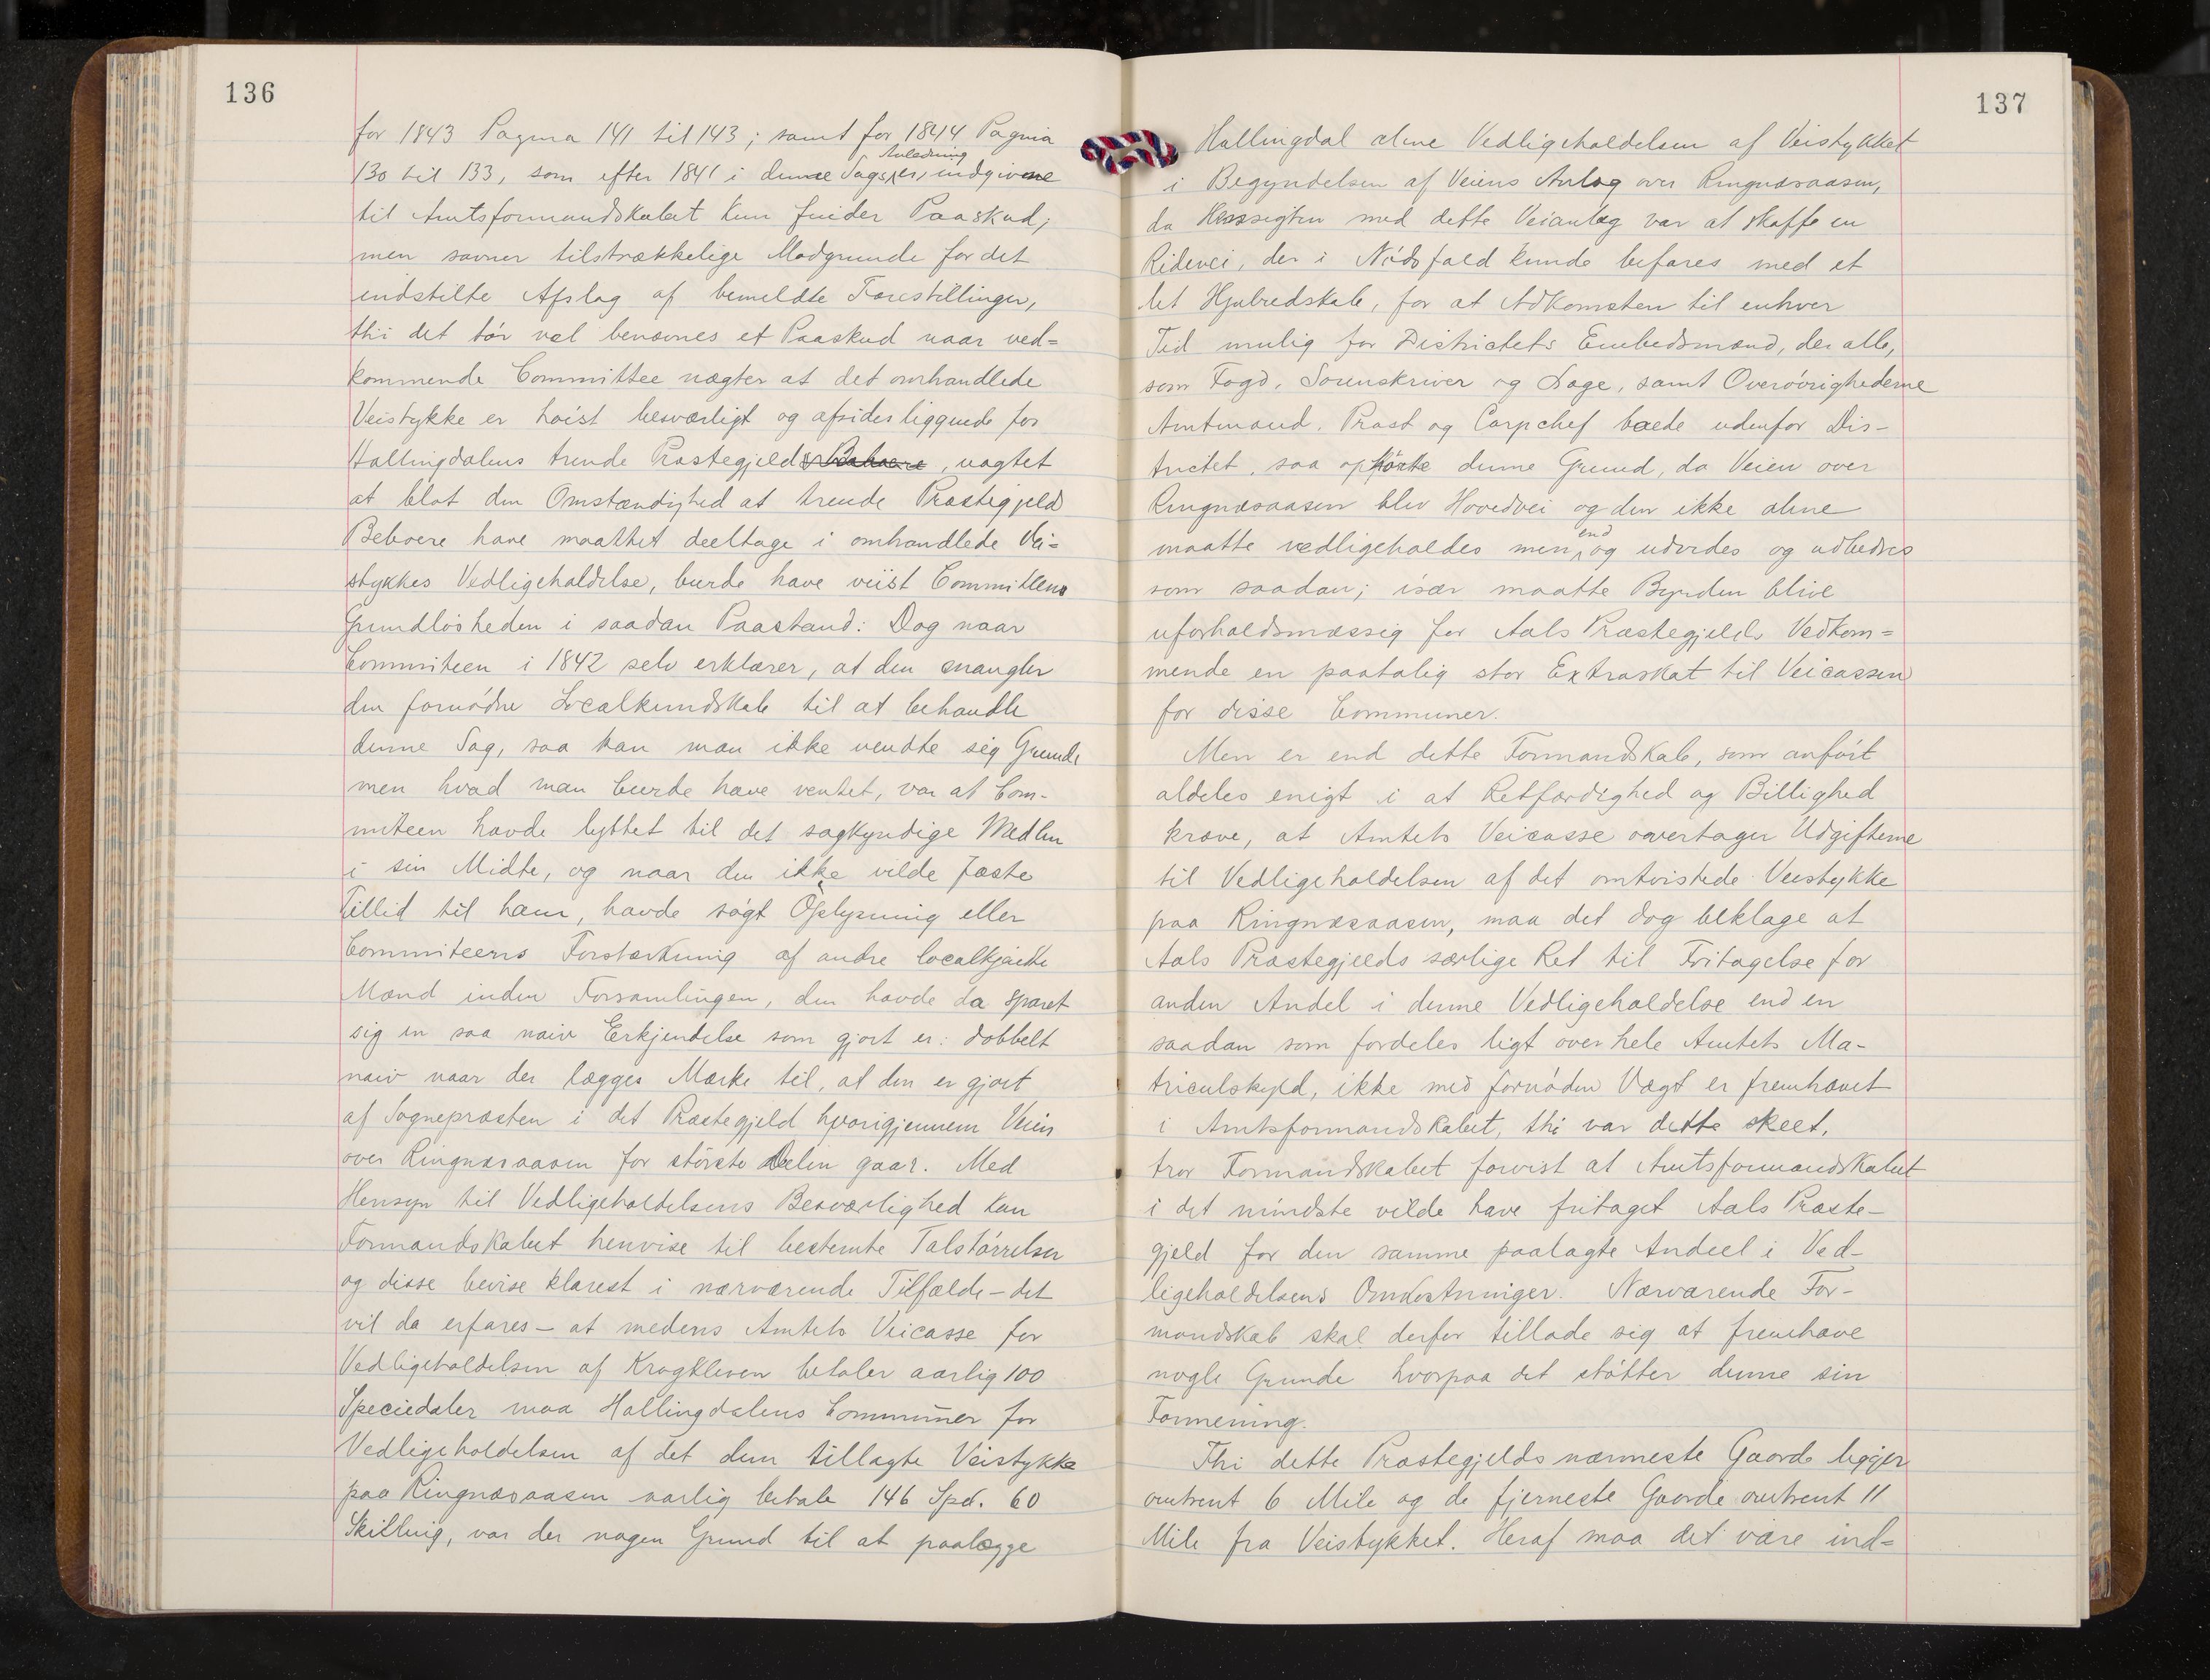 136
for 1843 Pagina 141 til 143; samt for 1844 Pagina
Anledning
130 til 133, som efter 1841 i denne Sags er indgivne
til Amtsformandskabet kun finder Paaskud;
men savner tilstrækkelige Modgrunde for det
indstilte Afslag af bemeldte Forestillinger,
thi det tör vel benævnes et Paaskud naar ved=
kommende Committee nægter at det omhandlede
Veistykke er höist besværligt og afsides liggende for
Hallingdalens trende Præstegjelds Beboere, uagtet
at blot den Omstændighed at trende Præstegjelds
Beboere have maattet deeltage i omhandlede Vei=
stykkes Vedligeholdelse, burde have viist Committeens
Grundlösheden i saadan Paastand: Dog naar
Commiteen i 1842 selv erklærer, at den mangler
den fornödne Localkundskab til at behandle
denne Sag, saa kan man ikke vendte sig Grunde
men hvad man burde have ventet, var at Com-
miteen havde lyttet til det sagkyndige Medlem
i sin Midte, og naar den ikke vilde fæste
Tillid til ham, havde sögt Oplysning eller
Commiteens Forstærkning af andre localkjendte
Mænd inden Forsamlingen, den havde da sparet
sig en saa naiv Erkjendelse som gjort er: dobbelt
naiv naar der lægges Mærke til, at den er gjort
af Sognepræsten i det Præstegjeld hvorigjennem Veien
over Ringnæsaasen for störste Delen gaar. Med
Hensyn til Vedligeholdelsens Besværlighed kan
Formandskabet henvise til bestemte Talstörrelser
og disse bevise klarest i nærværende Tilfælde - det
vil da erfares - at medens Amtets Veicasse for
Vedligeholdelsen af Krogkleven betaler aarlig 100
Speciedaler maa Hallingdalens Communer for
Vedligeholdelsen af det dem tillagte Veistykke
paa Ringnæsaasen aarlig betale 146 Spd. 60
Skilling, var der nogen Grund til at paalægge
137
Hallingdal alene Vedligeholdelsen af Veistykket
i Begyndelsen af Veiens Anlæg over Ringnæsaasen,
da Hensigten med dette Veianlæg var at skaffe en
Ridevei, der i Nödsfald kunde befares med et
let Hjulredskab, for at Adkomsten til enhver
Tid mulig for Districtets Embedsmænd, der alle,
som Fogd, Sorenskriver og Læge, samt Överövrighederne
Amtmand, Prost og Corpchef boede udenfor Dis-
trictet, saa ophörte denne Grund, da Veien over
Ringnæsaasen blev Hovedvei og den ikke alene
end
maatte vedligeholdes men og udvides og udbedres
som saadan; især maatte Byrden blive
uforholdsmæssig for Aals Præstegjelds Vedkom=
mende en paatalig stor Extraskat til Veicassen
for disse Communer.
Men er end dette Formandskab, som anfört
aldeles enigt i at Retfærdighed og Billighed
kræve, at Amtets Veicasse overtager Udgifterne
til Vedligeholdelsen af det omtvistede Veistykke
paa Ringnæsaasen, maa det dog beklage at
Aals Præstegjelds særlige Ret til Fritagelse for
anden Andel i denne Vedligeholdelse end en
saadan som fordeles ligt over hele Amtets Ma-
triculskyld, ikke med fornöden Vægt er fremhævet
i Amtsformandskabet, thi var dette skeet,
tror Formandskabet forvist at Amtsformandskabet
i det mindste vilde have fritaget Aals Præste-
gjeld for den samme paalagte Andeel i Ved-
ligeholdelsens Omkostninger. Nærværende For-
mandskab skal derfor tillade sig at fremhæve
nogle Grunde hvorpaa det stötter denne sin
Formening.
Thi dette Præstegjelds nærmeste Gaarde ligger
omtrent 6 Mile og de fjerneste Gaarde omtrent 11
Mile fra Veistykket. Heraf maa det være ind=